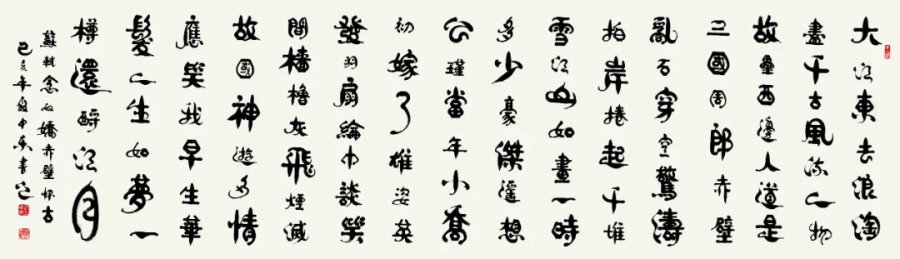 大江東去浪淘
盡千古風流人物
故壘西邊人道是
三國周郎赤壁
亂石穿空驚濤
拍岸捲起千堆
雪江山如畫一時
多少豪傑遥想
公瑾當年小喬
初嫁了雄姿英
發羽扇綸巾談笑
間檣櫓灰飛煙滅
故國神遊多情
應笑我早生華
髮人生如夢一
樽還酹江月
蘇軾念奴嬌赤壁怀古
己亥年夏中書